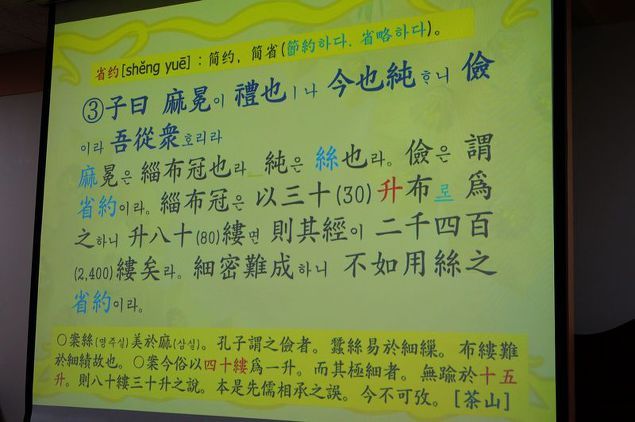 省约[shěng yuē] : 简约, 简省(節約하다. 省略하다)。
③子曰 麻冕이 禮也ㅣ나 今也純ᄒᆞ니 儉
이라 吾從衆호리라
麻冕은 緇布冠也라_ 純은 絲也라. 儉은 謂
省約이라. 緇布冠은 以三十(30)升布로 爲
之하니 升八十(80)縷면 則其經이 二千四百
(2,400)縷矣라. 細密難成하니 不如用絲之
省約이라.
○案絲(명주실)美於麻(삼실)。孔子謂之儉者。蠶絲易於細繅。布縷難
於細績故也。○案今俗以四十縷爲一升。而其極細者。無踰於十五
升。則八十縷三十升之說。本是先儒相承之誤。今不可攷。[茶山]